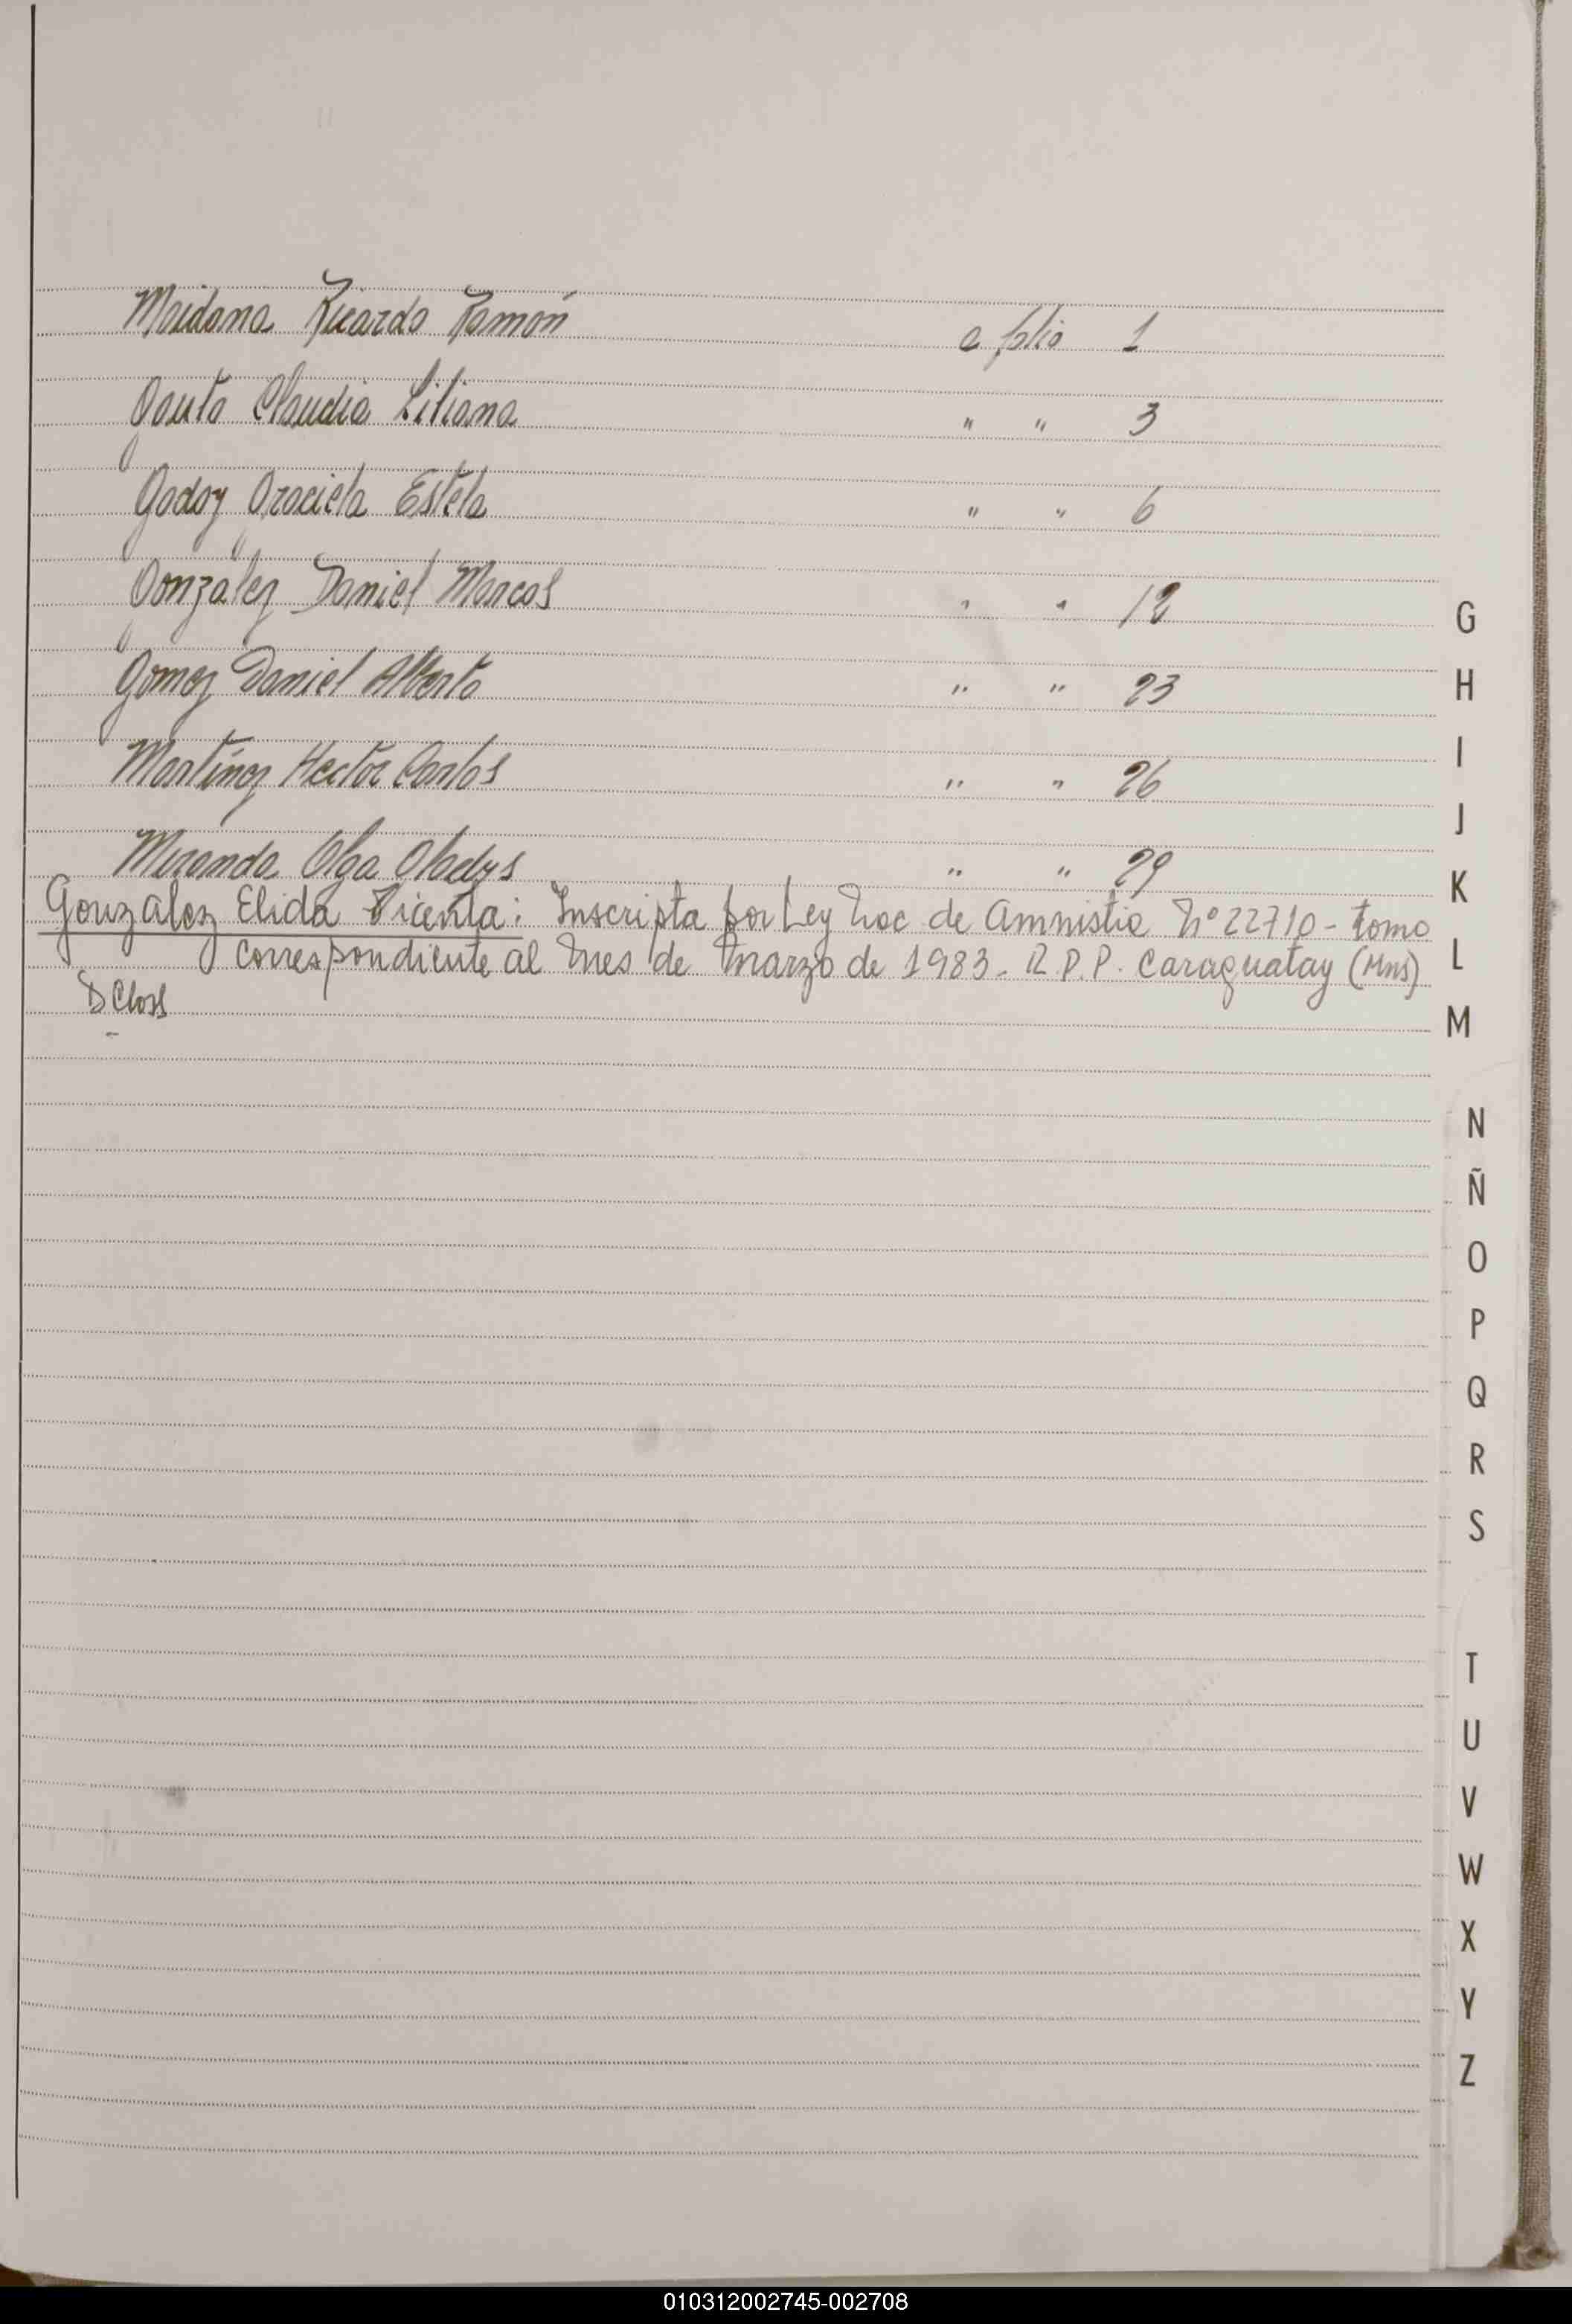 Maidana Ricardo Ramón a folio 1
Gauto Claudia Liliana " " 3
Godoy Graciela Estela " " 6
González Daniel Marcos " " 12
Gomez Daniel Alberto " " 23
Martínez Hector Carlos " " 26
Miranda Olga Gladys " " 29
Gonzalez Elida Vicenta: Inscripta por Ley Nac. de Amnistia Nº 22710 - tomo
correspondiente al mes de marzo de 1983 - R.P.P. Caraguatay (Mns)
D Closs
G
H
I
J
K
L
M
N
Ñ
O
P
Q
R
S
T
U
V
W
X
Y
Z
010312002745-002708